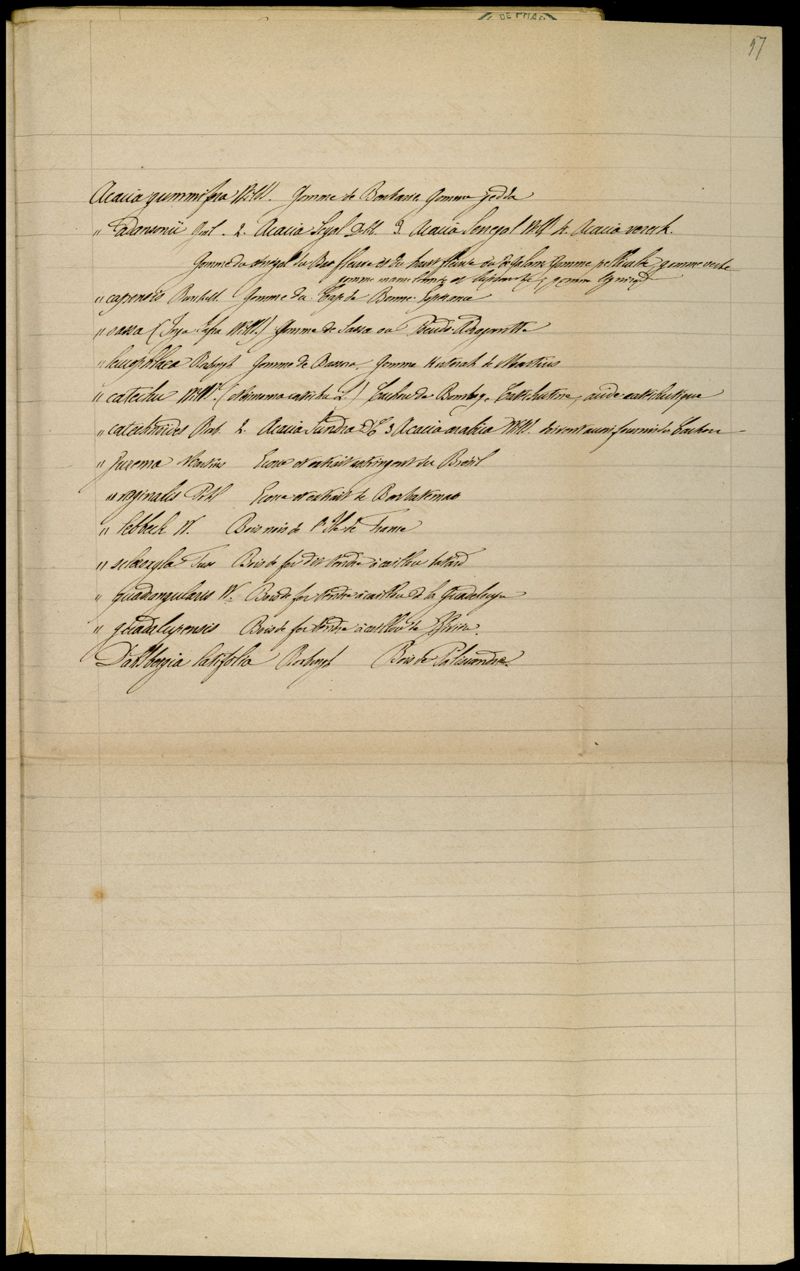 DE PHAR
97
Acacia gummifera Willd. Gomme de Barbarie, Gomme gedda
" adansonii Guil. 2. Acacia Seyal Dell. 3. Acacia Senegal Willd 4. Acacia vereck.
Gomme du Sénégal du Bas fleuve et du haut fleuve ou de Galam Gomme pelliculée, gomme verte
gomme mamelonnée et ; gomme lignirode
" capensis Burchell Gomme du Cap de Bonne Espérance
" sassa (Inga Sassa Willd) Gomme de Sassa ou Pseudo Adragante
" leucophlaea Roxburgh Gomme de Bassora, Gomme Kuteerah de Martius
" catechu Willd. (Mimosa catechu L.) Cachou de Bombay, Catéchutine, acide catéchutique
" catechuoides Rox 2. Acacia Sundra DC 3 Acacia arabica Willd. doivent aussi fournir du Cachou
" Jurema Martius Ecorce et extrait astringent du Brésil
" virginalis Pohl Ecorce et extrait de Barbatimao
" lebbeck W. Bois noir de l'Ile de France
" scleroxyla Tuss Bois de fer dit tendre à caillou batard
" quadrangularis W. Bois de fer tendre à caillou de la Guadeloupe
" guadelupensis Bois de fer tendre à caillou de
Dalbergia latifolia Roxburgh Bois de Palissandre.